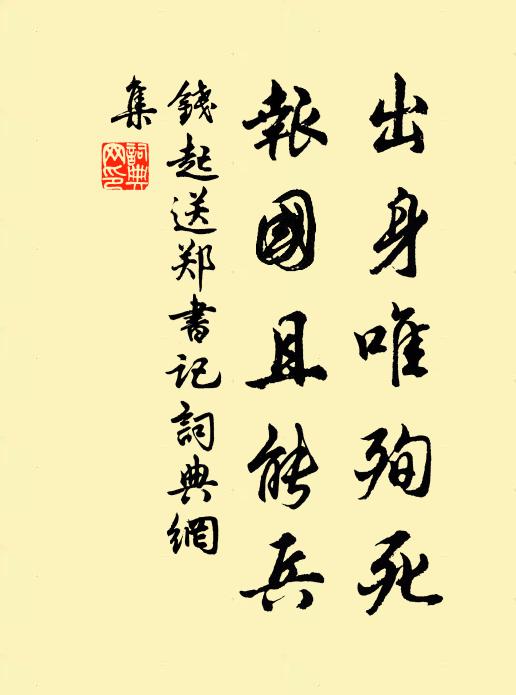 出身唯殉死
報國且能兵
錢起送郑書记詞典網
集
詞典網印